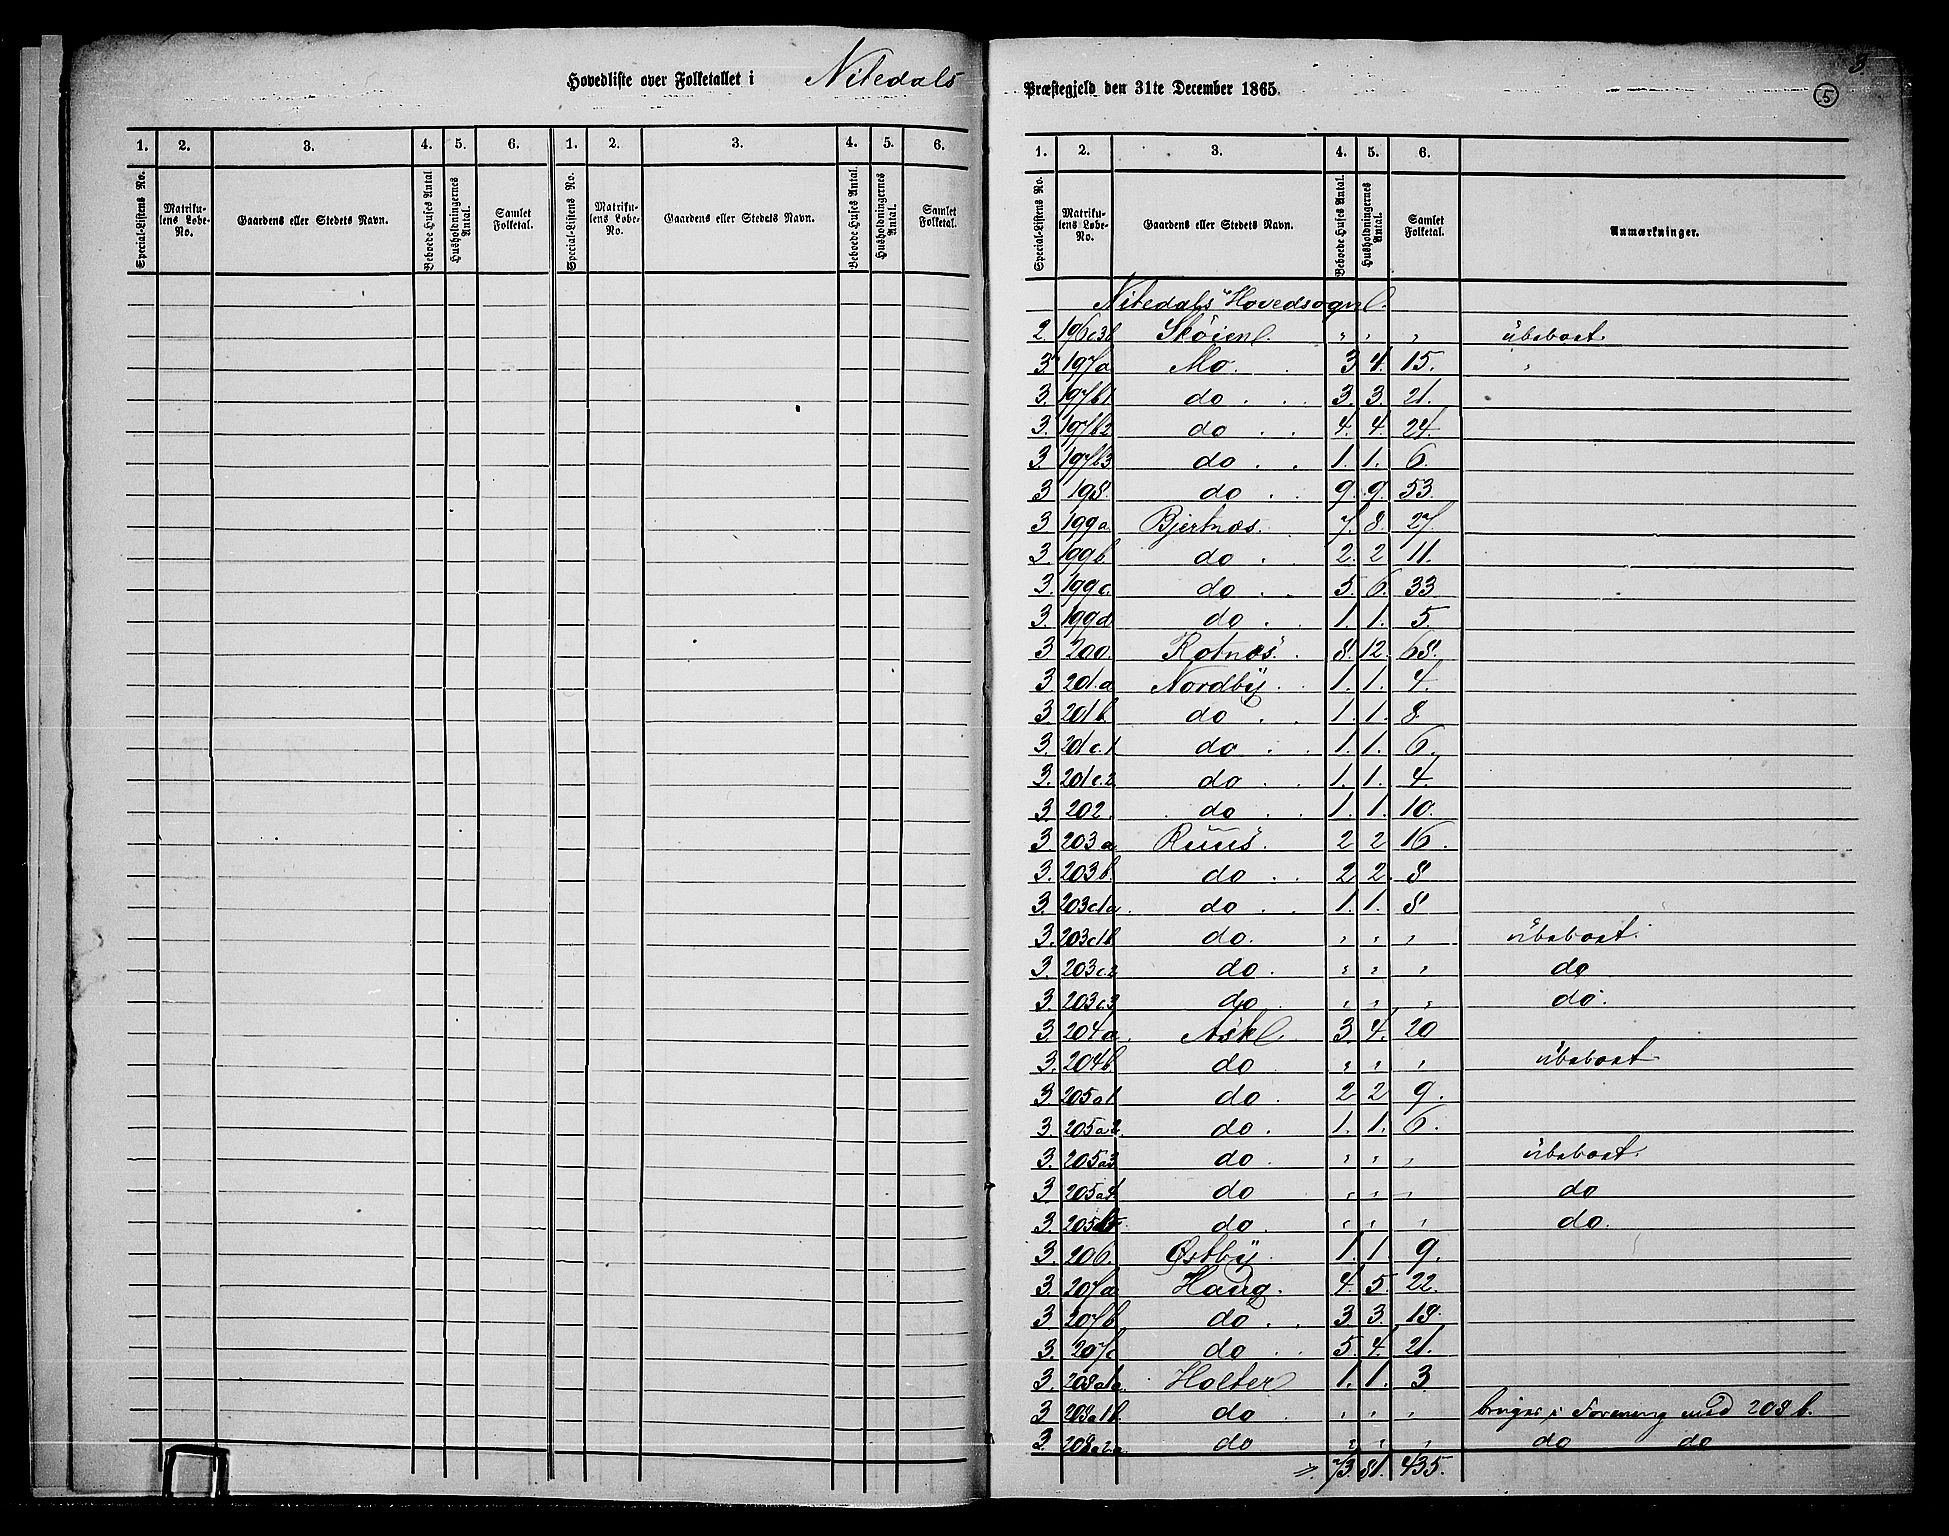 Hovedliste over Folketallet i Nitedals Præstegjeld den 31te December 1865.
3.
5
1. 2. 3. 4. 5. 6. 1. 2. 3. 4. 5. 6.
Special-Listens No. Matrikulens Løbe-No. Gaardens eller Stedets Navn. Beboede Huses Antal. Husholdningernes Antal. Samlet Folketal. Special-Listens No. Matrikulens Løbe-No. Gaardens eller Stedets Navn. Beboede Huses Antal. Husholdningernes Antal. Samlet Folketal.
1. 2. 3. 4. 5. 6.
Special-Listens No. Matrikulens Løbe-No. Gaardens eller Stedets Navn. Beboede Huses Antal. Husholdningernes Antal. Samlet Folketal. Anmærkninger.
Nitedals Hovedsogn.
2. 196c3b Skøien. " " " ubeboet.
3. 197a Mo. 3 4. 15. "
3. 197b1 do. 3. 3. 21.
3. 197b2 do. 4. 4. 24.
3. 197b3 do. 1. 1. 6.
3 198. do. 9. 9. 53.
3 199a Bjertnæs. 7. 8. 27.
3. 199b do. 2. 2 11.
3. 199c. do. 5. 6. 33
3. 199d do. 1. 1. 5.
3 200. Rotnæs. 8. 12. 68.
3 201.a Nordby. 1. 1. 4.
3. 201b do. 1. 1. 8
3. 201c.1 do. 1. 1. 6.
3. 201c.2 do. 1. 1. 4.
3. 202. do. 1. 1. 10.
3 203a Ruus. 2 2 16.
3. 203b. do. 2 2. 8
3. 203c1a. do. 1. 1. 8
3. 203c1b do. " " " ubeboet.
3. 203c.2 do. " " " do
3. 203c3 do. " " " do.
3. 204a. Ask. 3. 4. 20
3. 204b do " " " ubeboet.
3. 205a1 do. 2 2 9.
3. 205a2. do. 1. 1. 6.
3. 205a3 do. " " " ubeboet.
3 205a4 do " " " do
3. 205b. do. " " " do.
3. 206. Østby. 1. 1. 9.
3. 207a Haug. 4. 5. 22.
3 207b do. 3. 3. 18.
3. 207c do. 5. 4. 21.
3. 208a1a. Holter 1. 1. 3
3 208a1b. do. " " " bruges i Forening med 208b.
3. 208a2a do " " " do do
73. 81. 435.